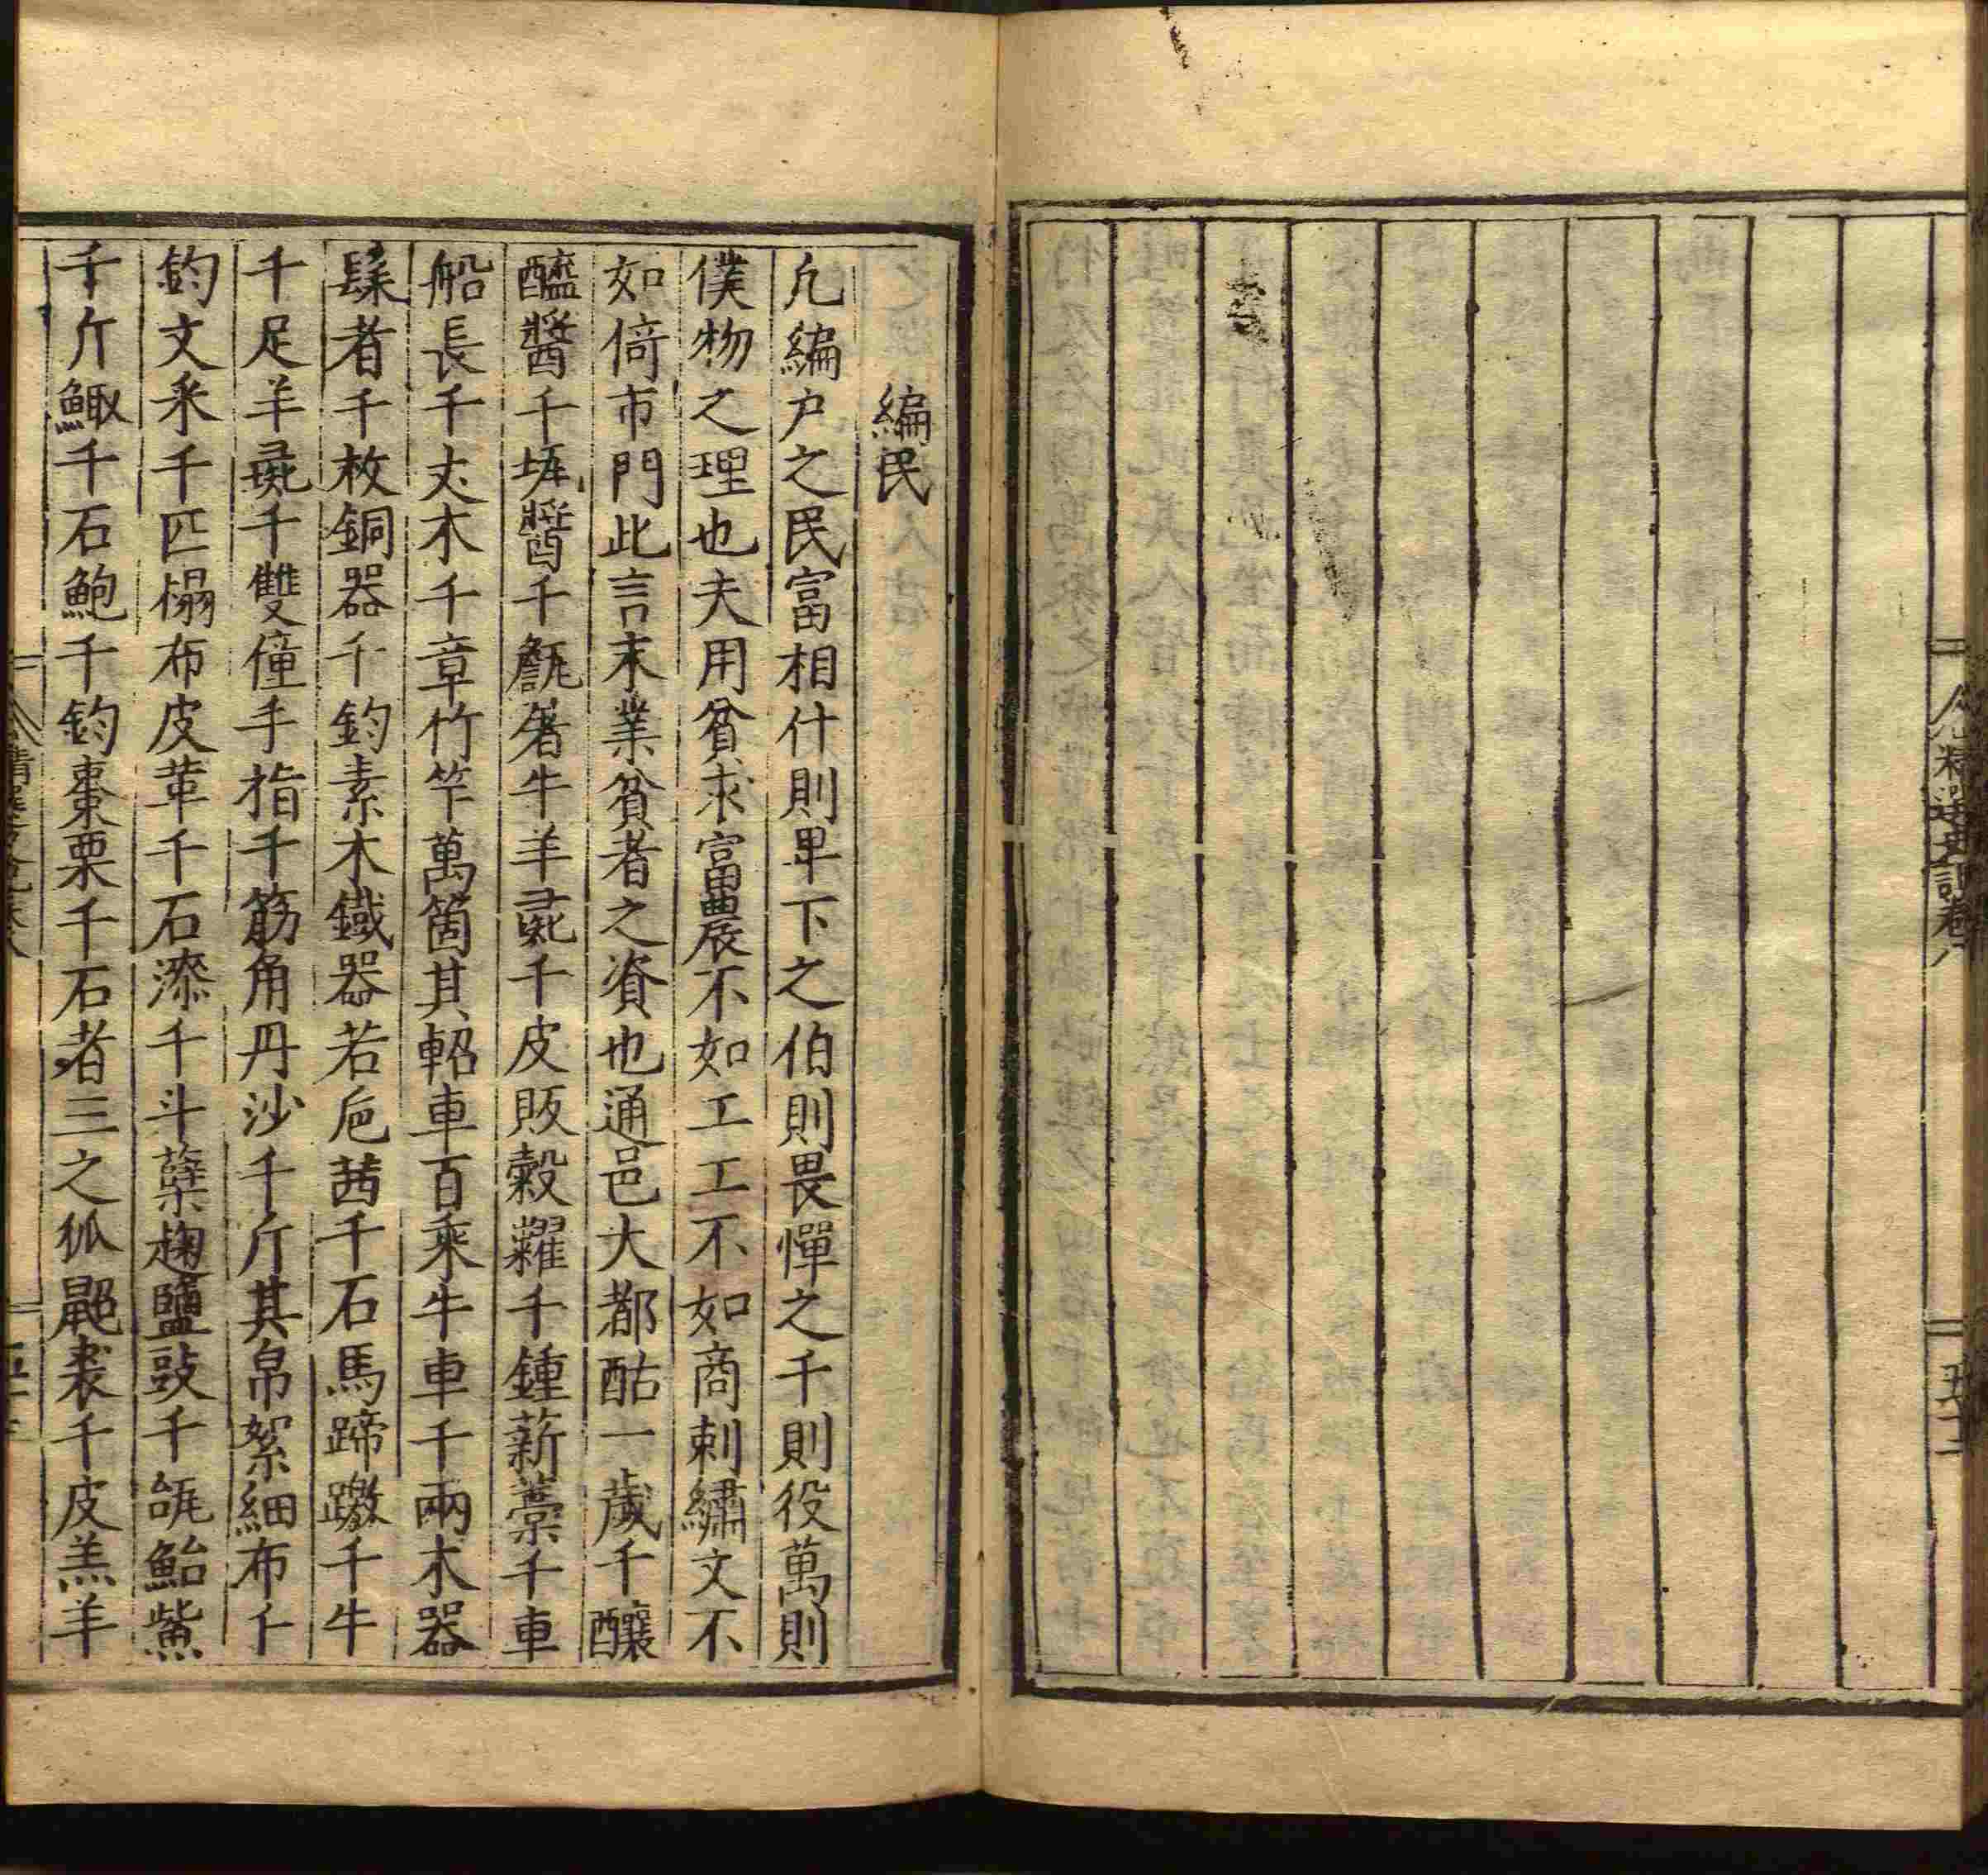 編民
凡編户之民富相什則卑下之伯則畏憚之千則役萬則
僕物之理也夫用貧求富農不如工工不如商刺繡文不
如倚市門此言末業貧者之資也通邑大都酤一歲千釀
醯醬千瓨醬千甔屠牛羊彘千皮販穀糶千鍾薪藁千車
船長千丈木千章竹竿萬箇其軺車百乘牛車千兩木器
髹者千枚銅器千鈞素木鐵器若巵茜千石馬蹄躈千牛
千足羊彘千雙僮手指千筋角丹沙千斤其帛絮細布千
鈞文采千匹榻布皮革千石漆千斗糱麹鹽豉千瓵鮐鮆
千斤鯫千石鮑千鈞棗栗千石者三之狐鼦裘千皮羔羊